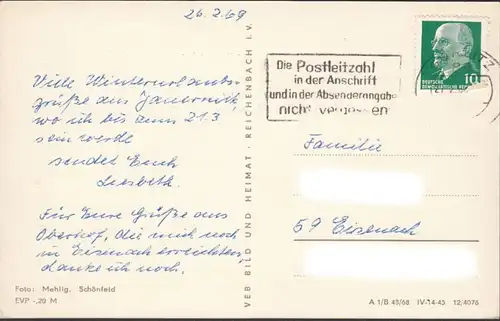 26.2.69
Viele Winterurlaubs-
grüße aus Jauernick,
wo ich bis zum 21.3
sein werde
sendet Euch
Liesbeth.
Für Eure Grüße aus
Oberhof, die mich noch
in Eisenach erreichten,
danke ich noch.
Foto: Mehlig, Schönfeld
EVP -,20 M
VEB BILD UND HEIMAT · REICHENBACH i. V.
Die Postleitzahl
in der Anschrift
und in der Absenderangabe
nicht vergessen
10
DEUTSCHE
DEMOKRATISCHE REP
Familie
59 Eisenach
A 1/B 48/68 IV-14-45 12/4076